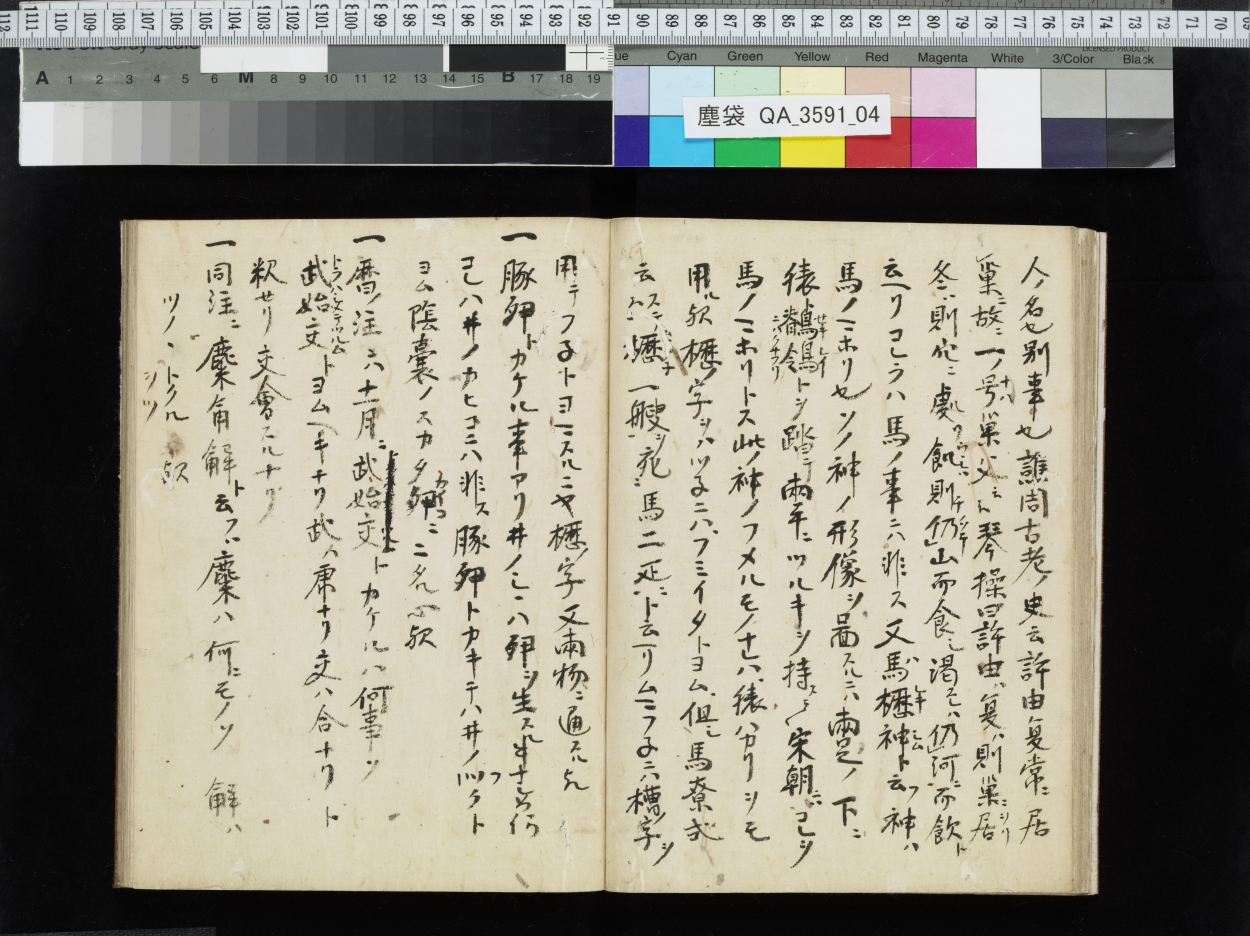 塵袋 QA_3591_04
Cyan Green Yellow Red Magenta White 3/Color Black
LICENSED PRODUCT
A 1 2 3 4 5 6 M 8 9 10 11 12 13 14 15 B 17 18 19
人ノ名也別事也譙周古老ノ史云許由夏常ニ居
巣ニ故ニ一ノ号巣父云々琴操曰許由夏則巣居
冬則穴ニ處飢則仍山而食渇仍河而飲ト
云ヘリコレラハ馬ノ事ニハ非ス又馬櫪神ト云フ神ハ
馬ノマホリ也ソノ神ノ形像ヲ図スルニハ両足ノ下ニ
猿鶺鴒トヲ踏テ両手ニツルキヲ持ス宋朝ニコレヲ
馬ノマホリトス此ノ神ノフメルモノナレハ猿ハカリヲモ
用ル歟櫪ノ字ヲハツ子ニハフミイタトヨム但シ馬寮式
云櫪一艘ヲ充ニ馬二疋ト云ヘリムマフ子ニハ槽ノ字ヲ
用テフ子トヨマスルニヤ櫪ノ字又両物ニ通スル歟
一豚卵トカケル事アリ井ノシシハ卵ヲ生スル
コレハ井ノカヒコニハ非ス豚卵トカキテハ井ノフクト
ヨム陰嚢ノスカタ卵ニ二名ル心歟
一暦ノ注ニハ十一月ニ武始交トカケルハ何事ソ
武始交トヨムヘキナリ武ハ虎ナリ交ハ合ナリト
釈セリ交會スルナリ
一同注ニ麋角解ト云フハ麋ハ何ニモノソ 解ハ
ツノトクル歟